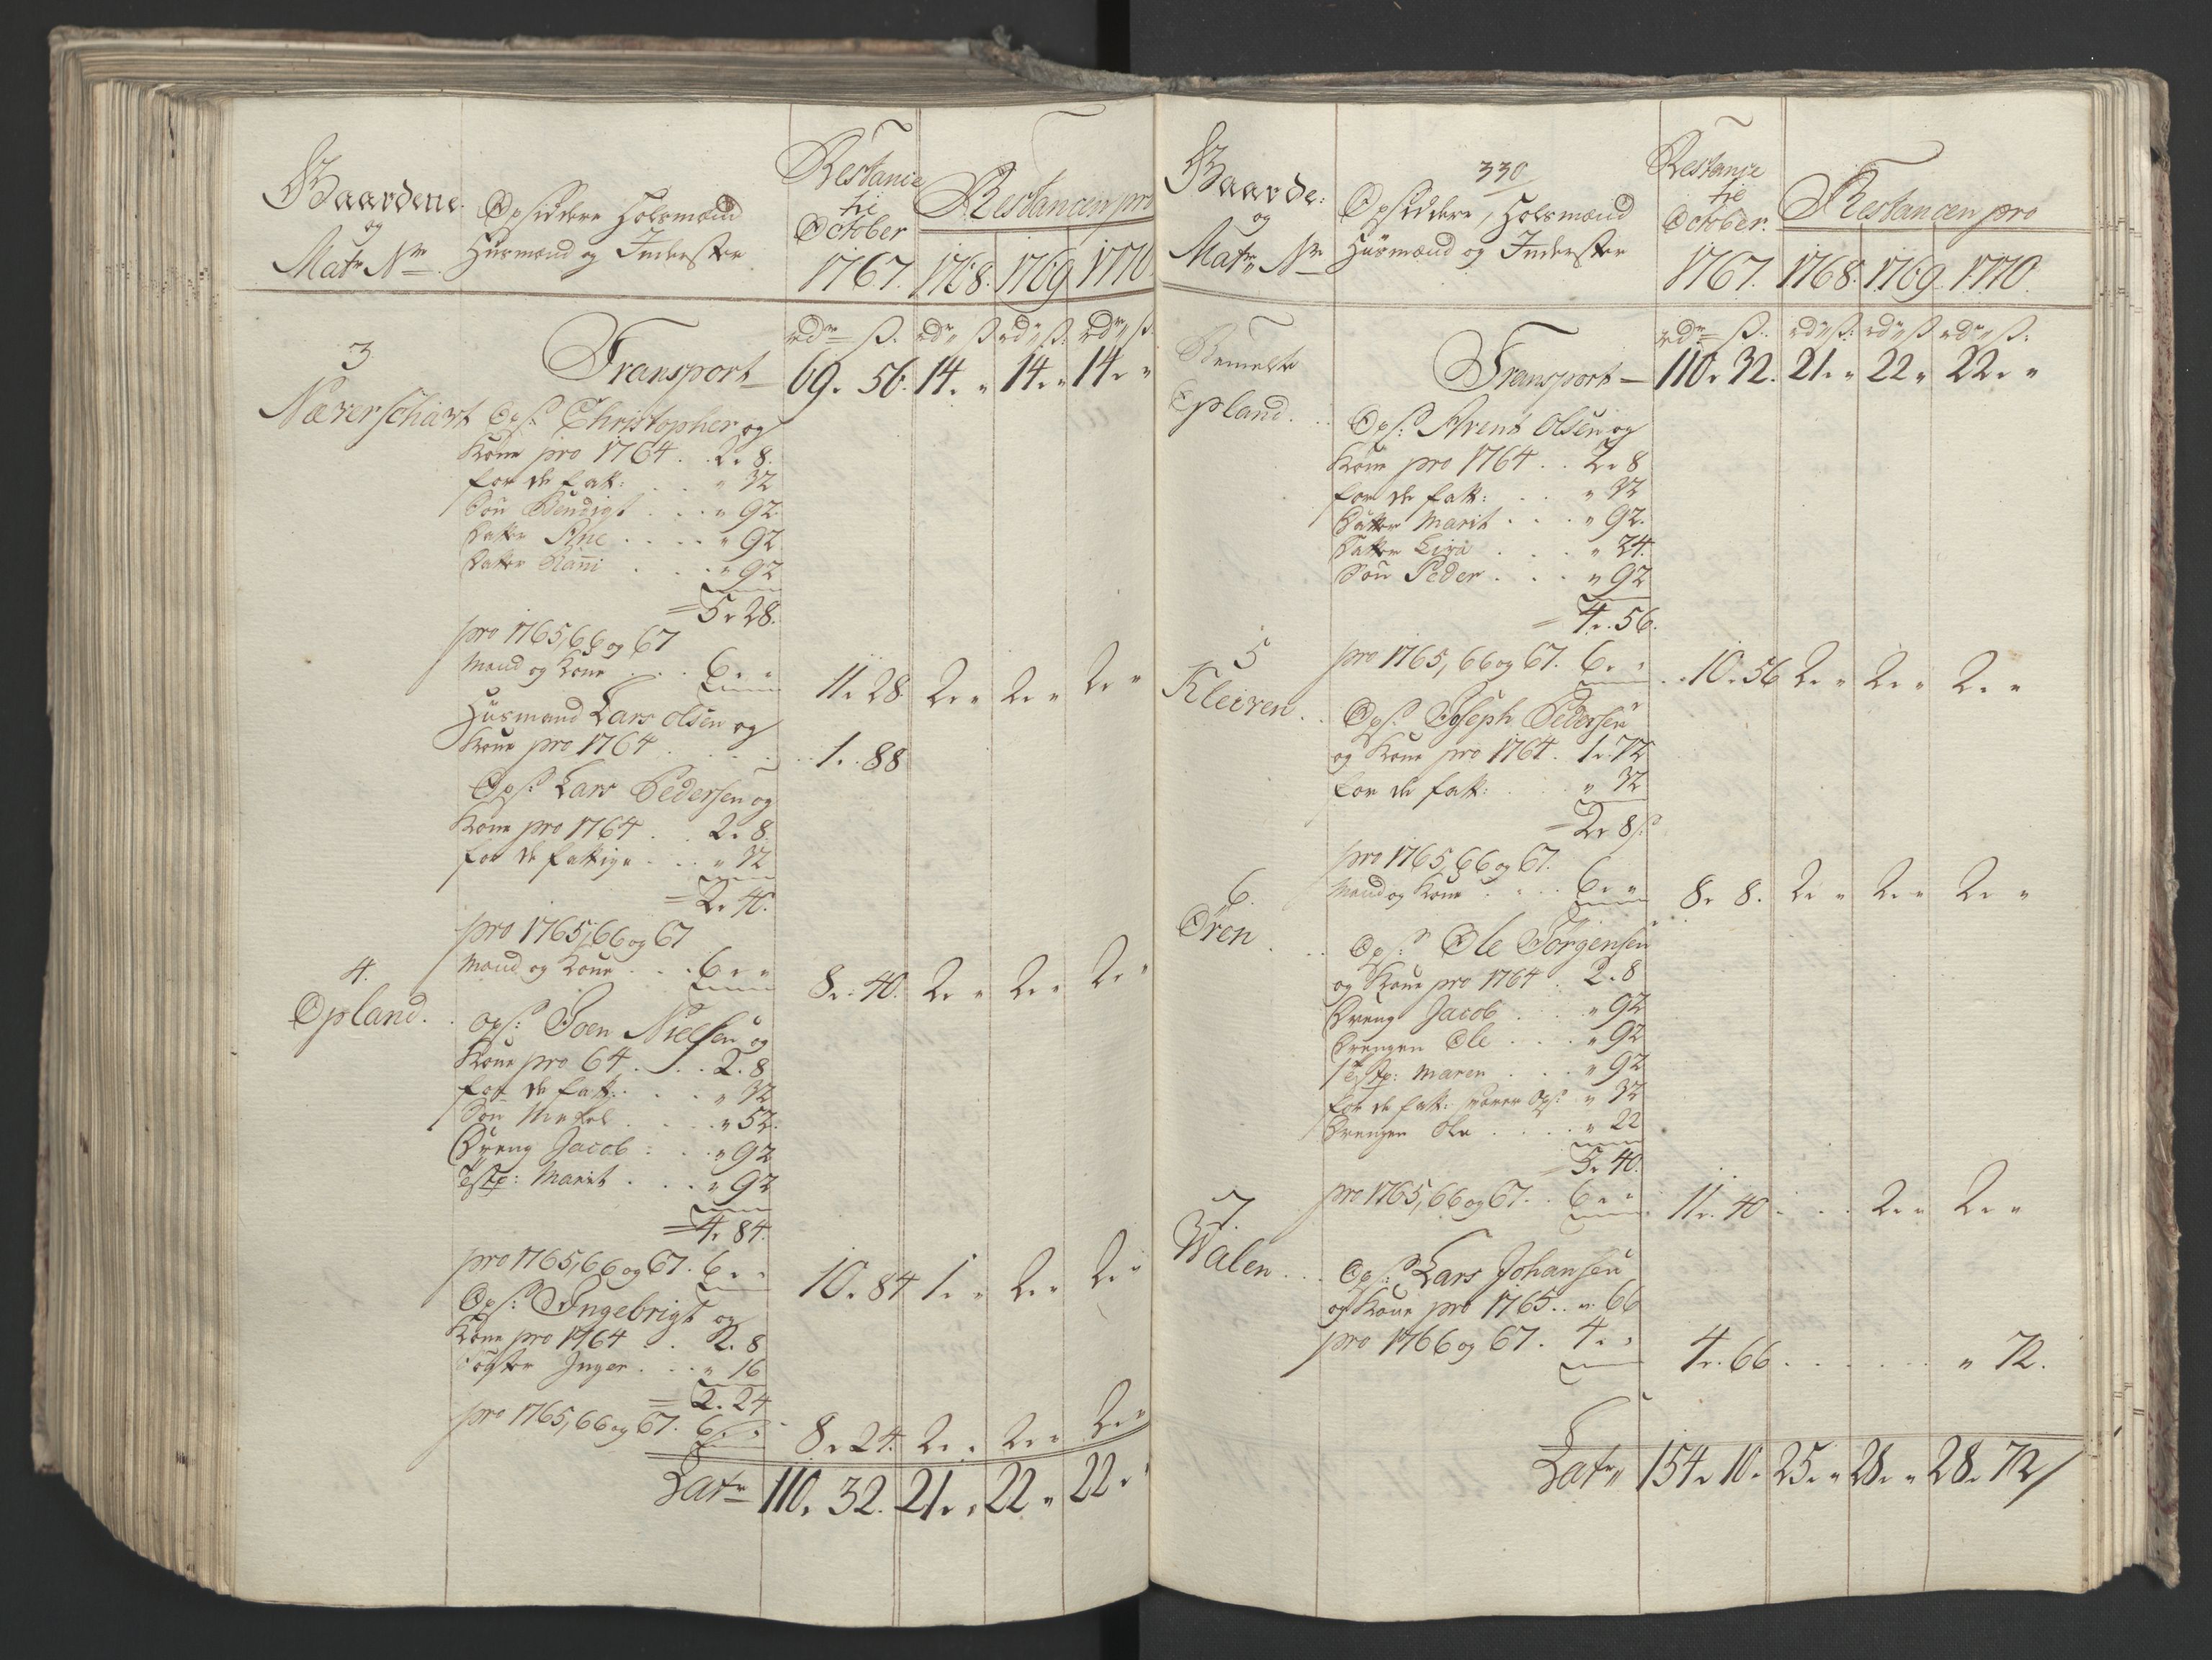 Gaardene
og
Matr Nr
Opsiddere Holsmænd
Husmænd og Inderster
Restance
til
October
1767.
Restancen pro
1768. 1769 1770.
rdr ß. rdr ß rdr ß. rdr ß.
Transport 69. 56. 14. " 14. " 14. "
3
Næverschart Ops: Christopher og
Kone pro 1764 . . 2. 8.
for de fatt: . . . " 32
Søn Bendigt . . . " 92.
Datter Ane . . . . " 92
Datter . . . " 92
= 5. 28.
pro 1765, 66 og 67
Mand og Kone . . . 6. " 11. 28 2. " 2. " 2. "
Husmand Lars Olsen og
Kone pro 1764 . . . . . 1. . 88
Ops: Lars Pedersen og
Kone pro 1764 . . 2. 8.
for de fattige . . . " 32
= 2. 40.
pro 1765, 66 og 67
Mand og Kone . . . 6. " 8. . 40. 2. " 2. " 2. "
4.
Opland. . Ops: Joen Nielsen og
Kone pro 64 . . . 2. 8
for de fatt: . . . " 32
Søn . . . . " 52.
Dreng Jacob : . . " 92
Tste: Marit . . . " 92
= 4. 84.
pro 1765, 66 og 67. 6. " 10. 84 1. " 2. " 2. "
Ops: Ingebrigt og
Kone pro 1764 . . 2. 8
Søster Inger . . . " 16
= 2. 24
pro 1765, 66 og 67. 6. " 8. 24. 2. " 2. " 2. "
Latr 110. 32. 21. " 22 " 22. "
Gaarde:
og
Matr Nr
330
Opsiddere, Holsmænd
Husmænd og Inderster
Restance
til
October.
1767.
Restancen pro
1768. 1769. 1770.
rdr ß. rdr ß: rdr ß rdr ß:
Transport — 110. 32. 21. " 22 " 22. "
Bemelte
Opland. . . Ops: Arent Olsen og
Kone pro 1764 . . 2. 8
for de fatt: . . " 32
Datter Marit . . . " 92.
Datter . . . " 24.
Søn Peder . . . " 92
= 4. . 56.
pro 1765, 66 og 67. 6. " . . 10. 56 2. " 2. " 2. "
5
Kleiven . . Ops: Joseph Pedersen
og Kone pro 1764. 1. 72
for de fatt: . . . " 32
= 2. 8 ß
pro 1765, 66 og 67.
Mand og Kone . . . 6. " 8. 8. 2. " 2. " 2. "
6.
Ören . . . Ops: Ole Jörgensen
og Kone pro 1764 . 2. 8
Dreng Jacob . . . " 92
Drengen Ole . . . " 92
Tste: Maren . . . " 92
for de fatt: svarer Ops: " 32
Drengen Ole . . . . " 22
= 5. 40.
pro 1765, 66 og 67. . 6. " 11. 40 . . . 2. " 2. "
7.
Walen . . . Ops: Lars Johansen
og Kone pro 1765. . " 66
pro 1766 og 67. 4. " 4. 66 . . . . . . " 72.
Latr 154. 10. 25. " 28. " 28. 72/